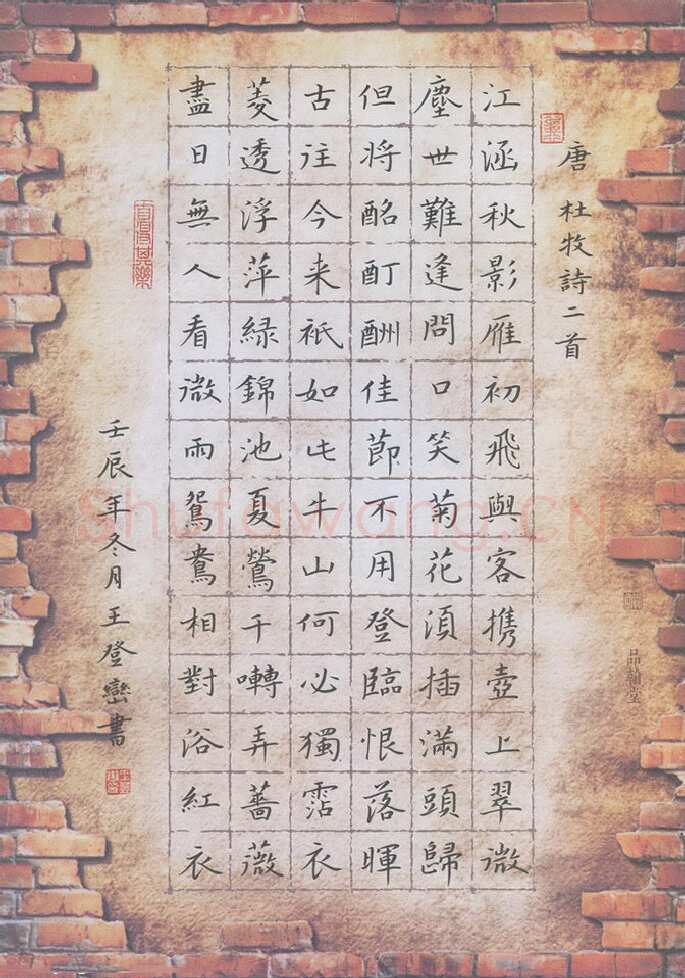 唐 杜牧詩二首
江涵秋影雁初飛與客携壺上翠微
塵世難逢問口笑菊花須插滿頭歸
但將酩酊酬佳節不用登臨恨落暉
古往今来衹如此牛山何必獨霑衣
菱透浮萍緑錦池夏鶯千囀弄薔薇
盡日無人看微雨鴛鴦相對浴紅衣
壬辰年冬月王登巒書
Shufawang.CN